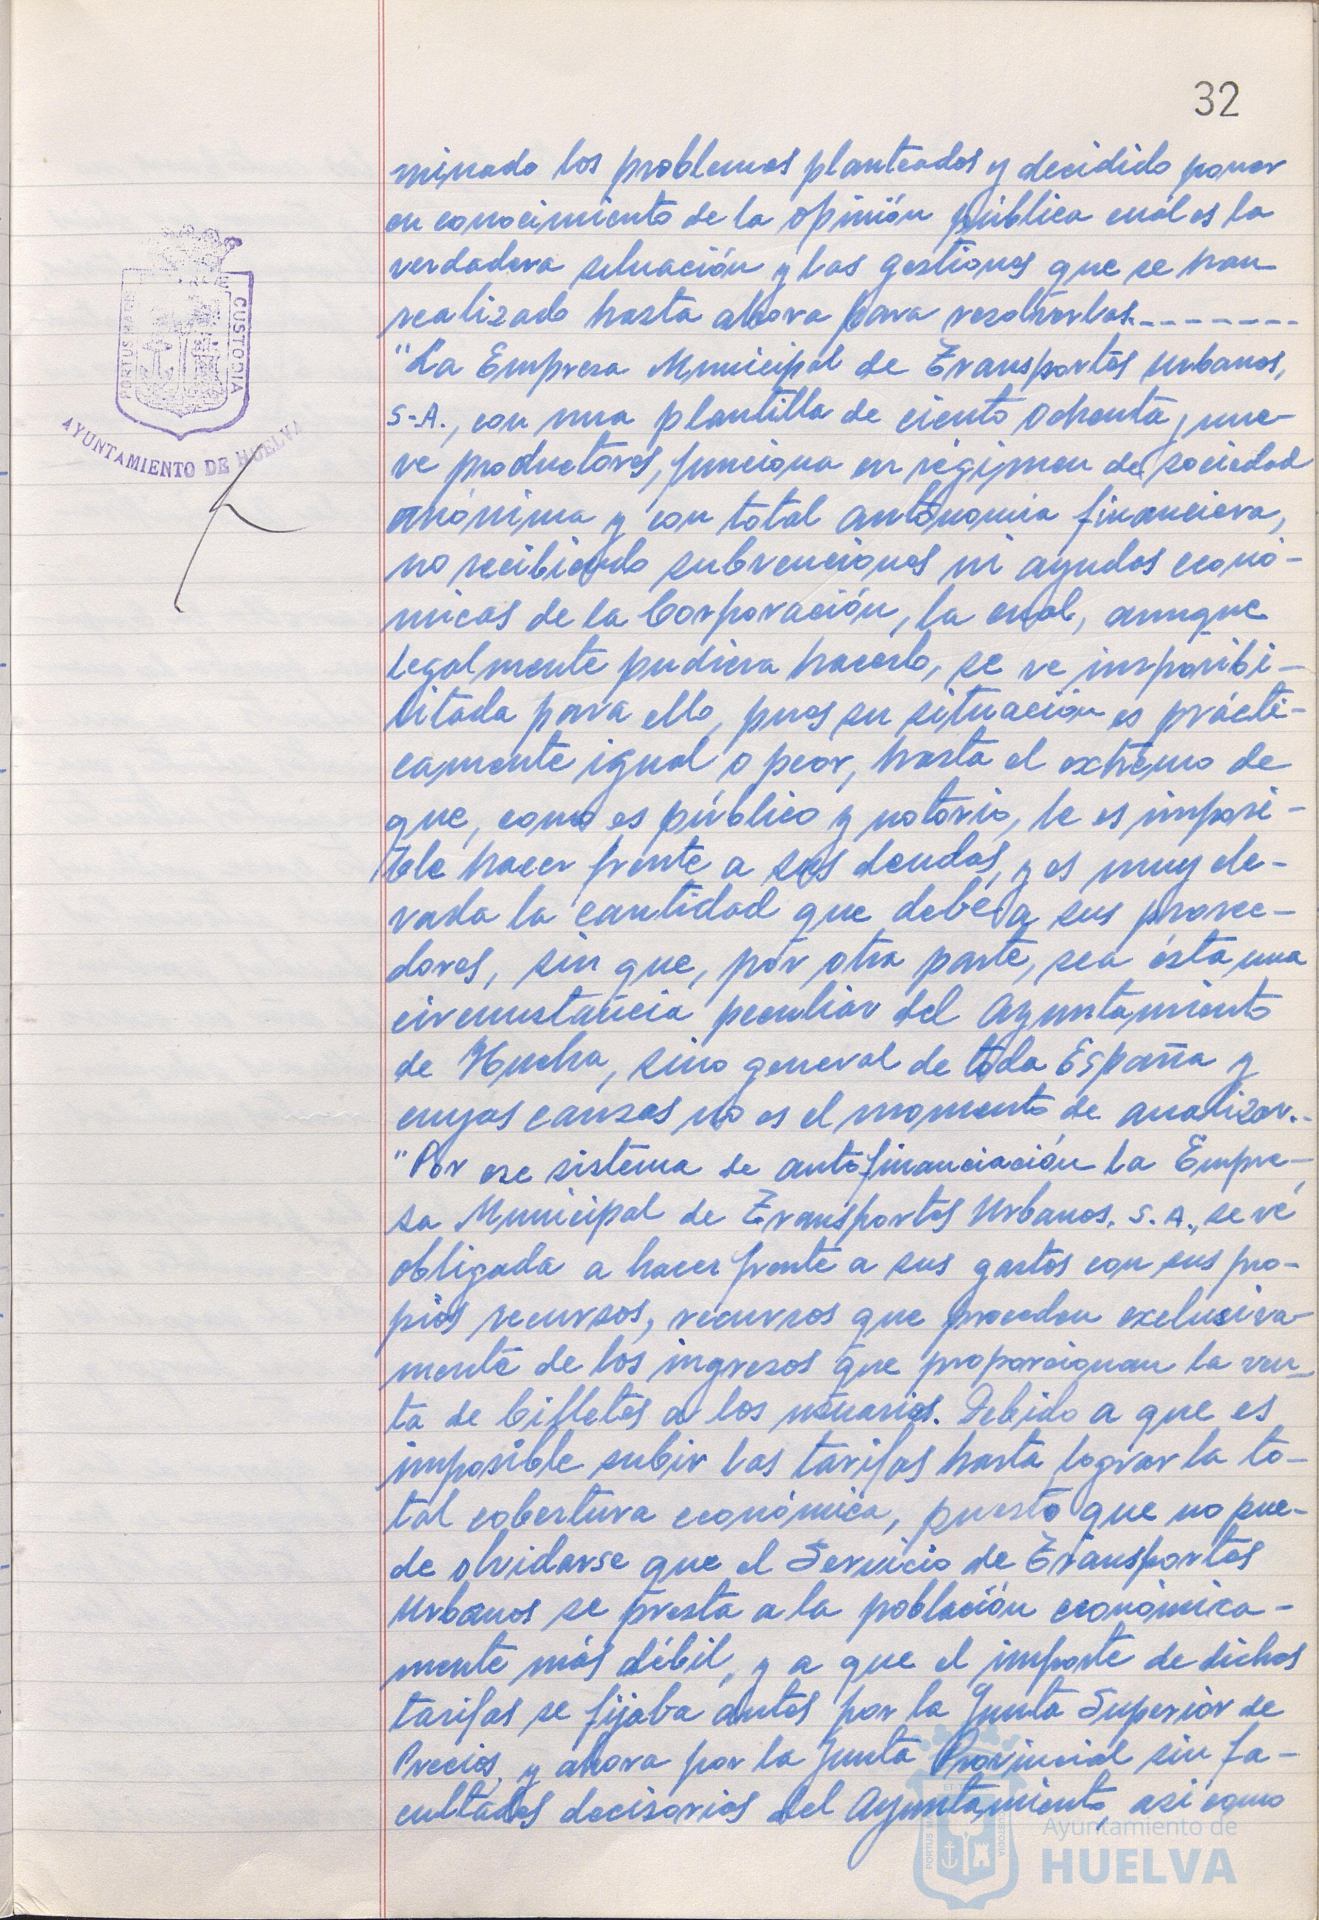 32
minado los problemas planteados y decidido poner
en conocimiento de la opinión pública cuál es la
verdadera situación y las gestiones que se han
realizado hasta ahora para resolverlos.--------
"La Empresa Municipal de Transportes Urbanos,
S.A., con una plantilla de ciento ochenta y nue-
ve productores, funciona en régimen de sociedad
anónima y con total autonomía financiera,
no recibiendo subvenciones ni ayudas econó-
micas de la Corporación, la cual, aunque
legalmente pudiera hacerlo, se ve imposibi-
litada para ello, pues su situación es prácti-
camente igual o peor, hasta el extremo de
que, como es público y notorio, le es imposi-
ble hacer frente a sus deudas, y es muy ele-
vada la cantidad que debe a sus provee-
dores, sin que, por otra parte, sea ésta una
circunstancia peculiar del Ayuntamiento
de Huelva, sino general de toda España y
cuyas causas no es el momento de analizar.-
"Por ese sistema de autofinanciación la Empre-
sa Municipal de Transportes Urbanos, S.A., se vé
obligada a hacer frente a sus gastos con sus pro-
pios recursos, recursos que proceden exclusiva-
mente de los ingresos que proporcionan la ven-
ta de billetes a los usuarios. Debido a que es
imposible subir las tarifas hasta lograr la to-
tal cobertura económica, puesto que no pue-
de olvidarse que el Servicio de Transportes
Urbanos se presta a la población económica-
mente más débil, y a que el importe de dichas
tarifas se fijaba antes por la Junta Superior de
Precios, y ahora por la Junta Provincial sin fa-
cultades decisorias del Ayuntamiento, así como
PORTUS MARIS
CUSTODIA
AYUNTAMIENTO DE HUELVA
Ayuntamiento de
HUELVA